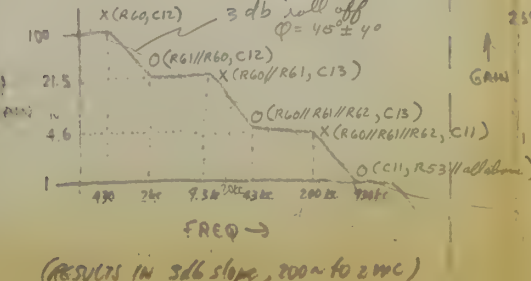 X (R60, C12)
3 db roll off
Φ = 45° ± 4°
100
O (R61//R60, C12)
X (R60//R61, C13)
GAIN
21.5
O (R60//R61//R62, C13)
4.6
X (R60//R61//R62, C11)
O (C11, R53 // all above)
1
430 2kc 9.3kc 20kc 43kc 200kc
FREQ →
(RESULTS IN 3db slope, 200~ to 2 MC)